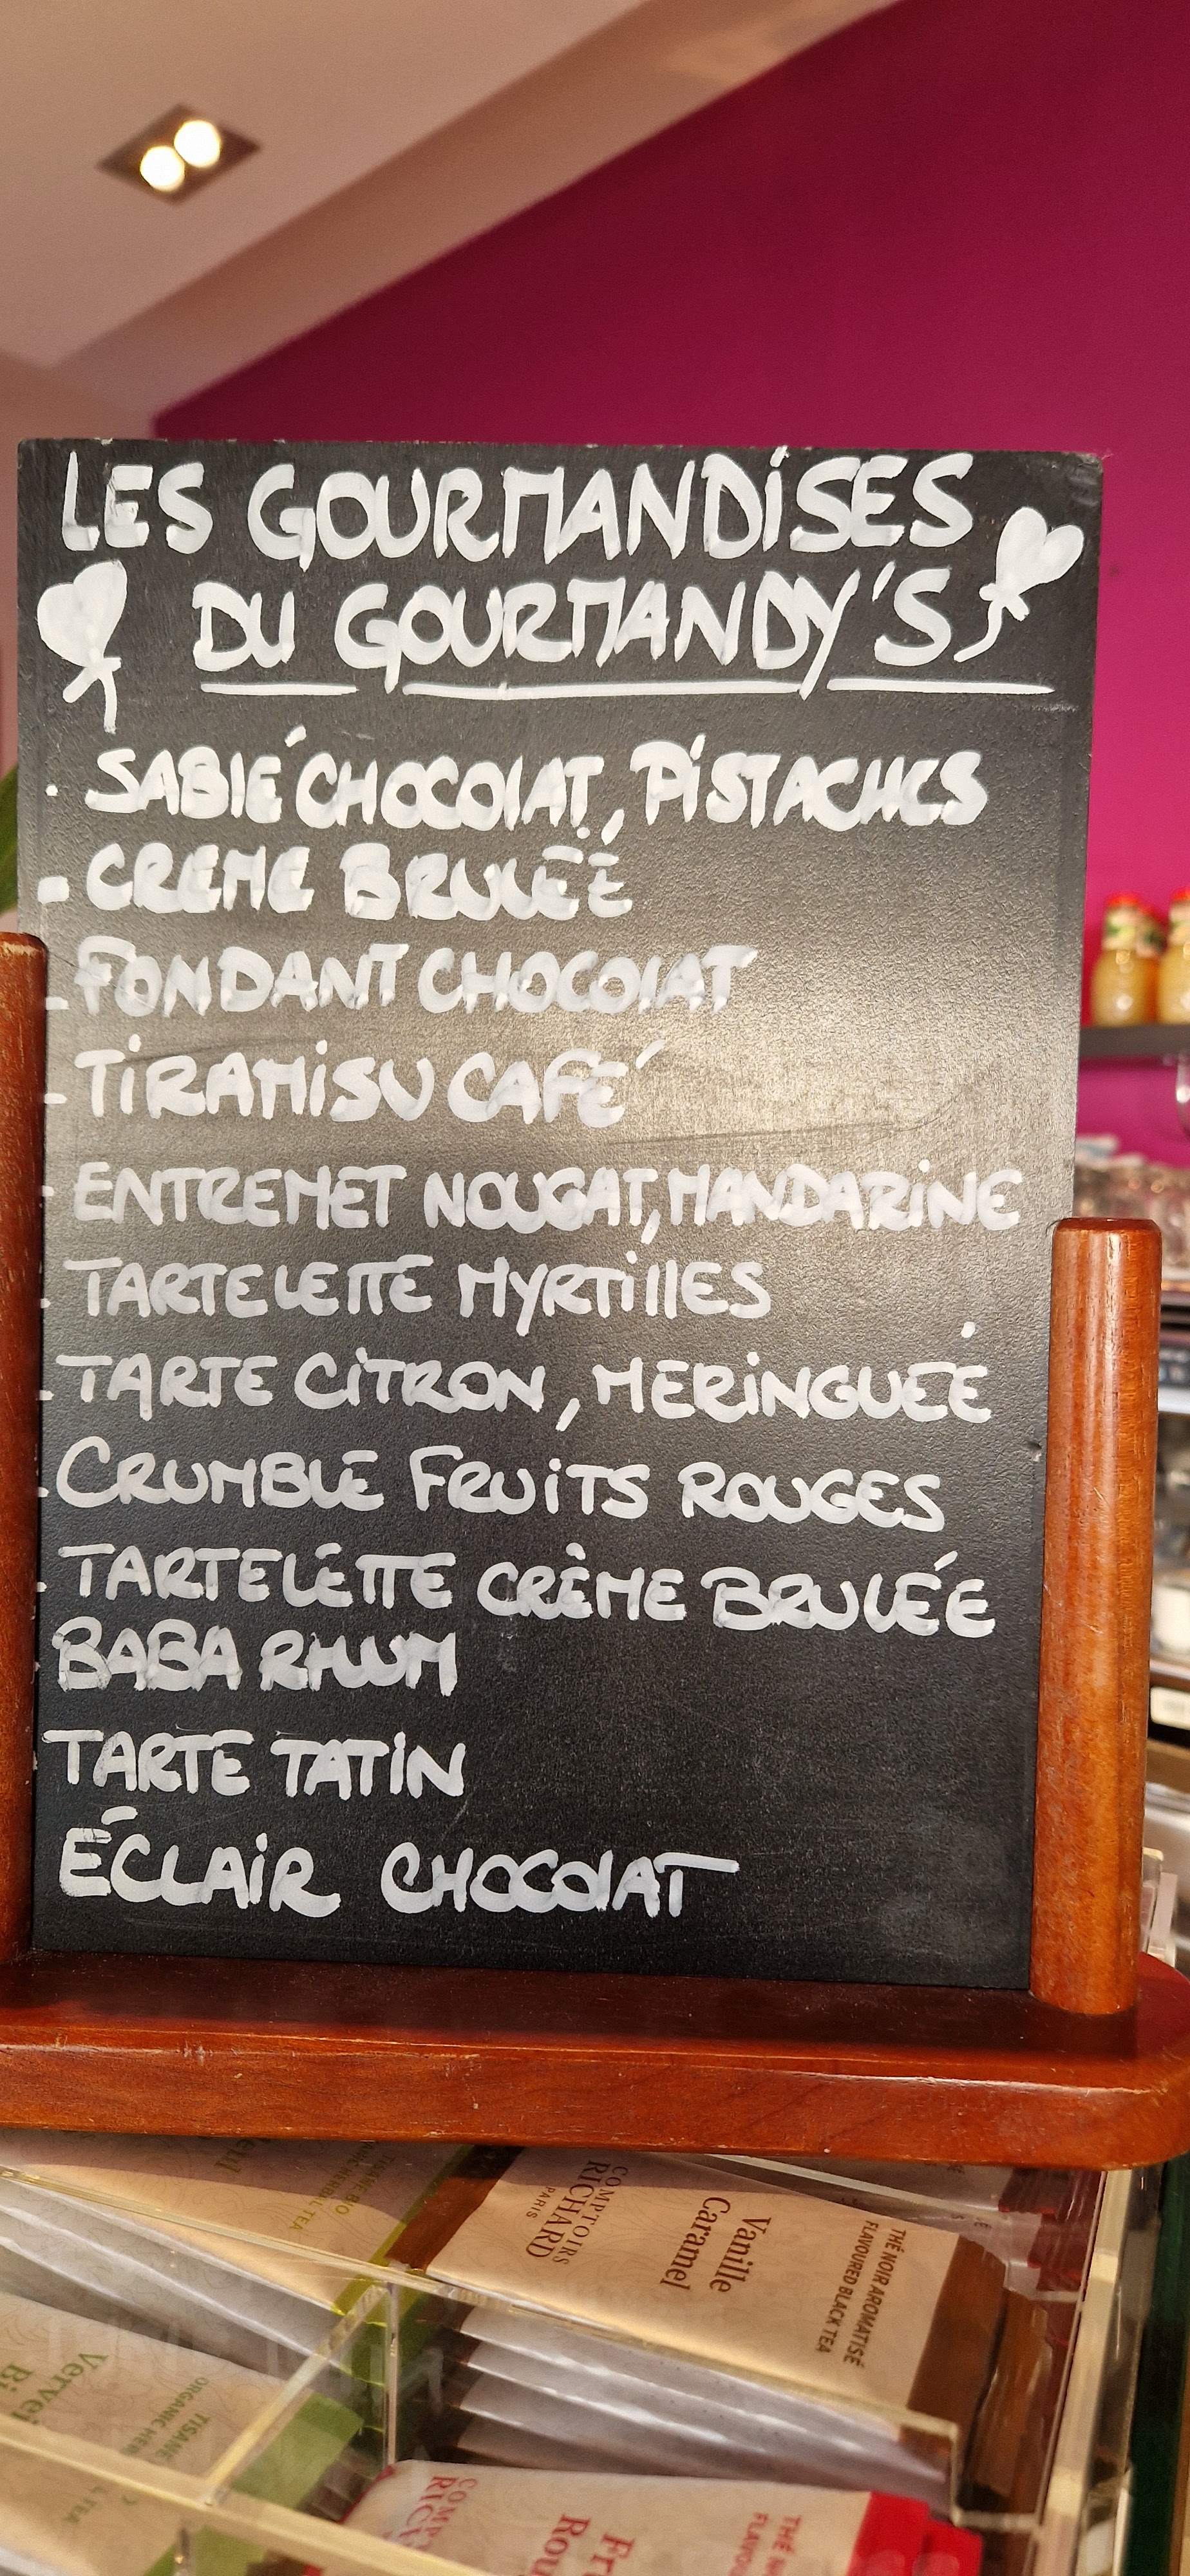 LES GOURMANDiSES
DU GOURMANDY'S
. SABLÉ CHOCOLAT, PiSTACHES
- CREME BRULÉE
- FONDANT CHOCOLAT
- TiRAMiSU CAFÉ
- ENTREMET NOUGAT, MANDARiNE
- TARTELETTE MYRTiLLES
- TARTE CiTRON, MERiNGUÉE
- CRUMBLE FRUiTS ROUGES
- TARTELETTE CRÈME BRULÉE
BABA RHUM
TARTE TATiN
ÉCLAiR CHOCOLAT
COMPTOIRS
RICHARD
PARIS
Vanille
Caramel
THÉ NOIR AROMATISÉ
FLAVOURED BLACK TEA
TISANE BIO
HERBAL TEA
TISANE
ORGANIC
THÉ